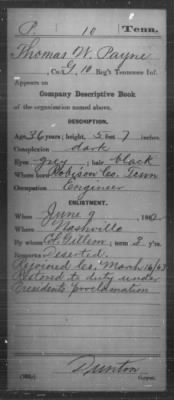 P 10 Tenn.
Thomas W. Payne
, Co. G, 10 Reg't Tennessee Inf.
Appears on
Company Descriptive Book
of the organization named above.
DESCRIPTION.
Age 36 years; height 5 feet 7 inches.
Complexion dark
Eyes grey; hair black
Where born Robison Co. Tenn
Occupation Engineer
ENLISTMENT.
When June 9, 1862.
Where Nashville
By whom Col. Gillem; term 3 y'rs.
Remarks Deserted.
Rejoined Co. March 16/63
Restored to duty under
Presidents proclamation
Dunton
Copyist.